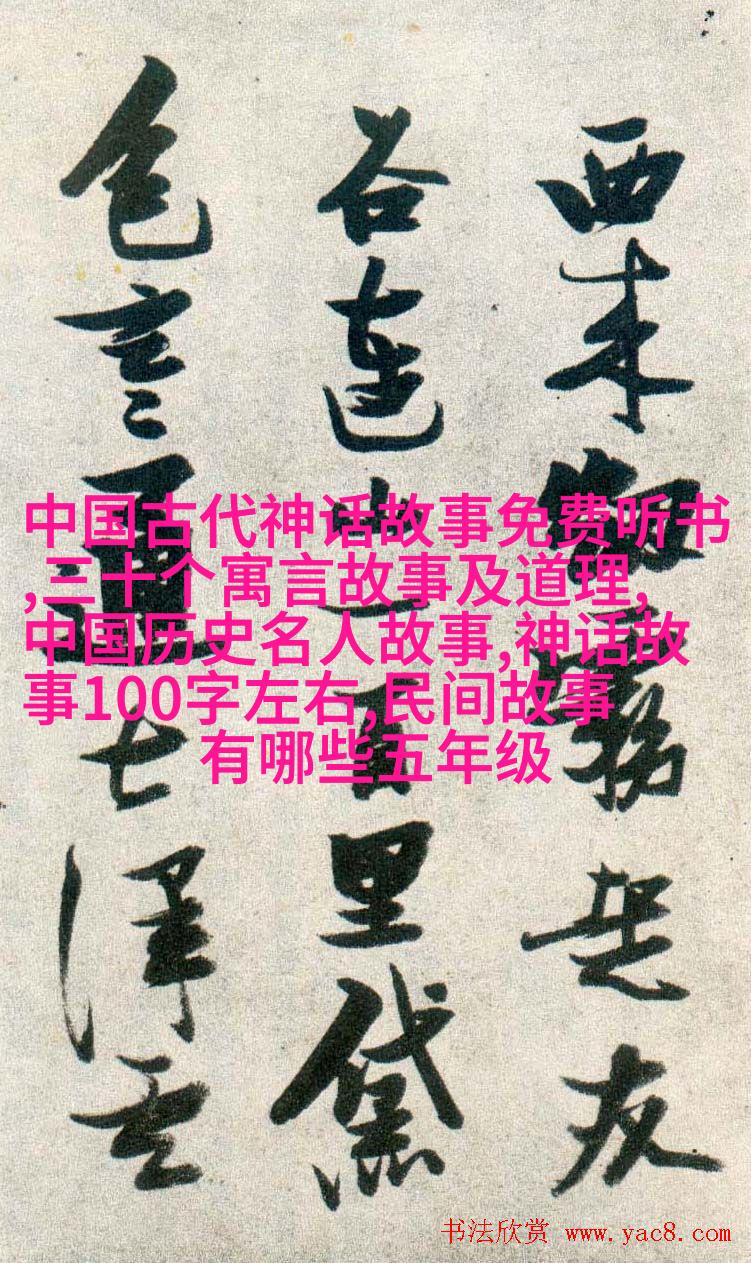 中国古代神话故事免费听书
,三十个寓言故事及道理,
中国历史名人故事,神话故
事100字左右,民间故事
有哪些五年级
西 友
谷連 百里黛
色言通七澤
书法欣赏 www.yac8.com